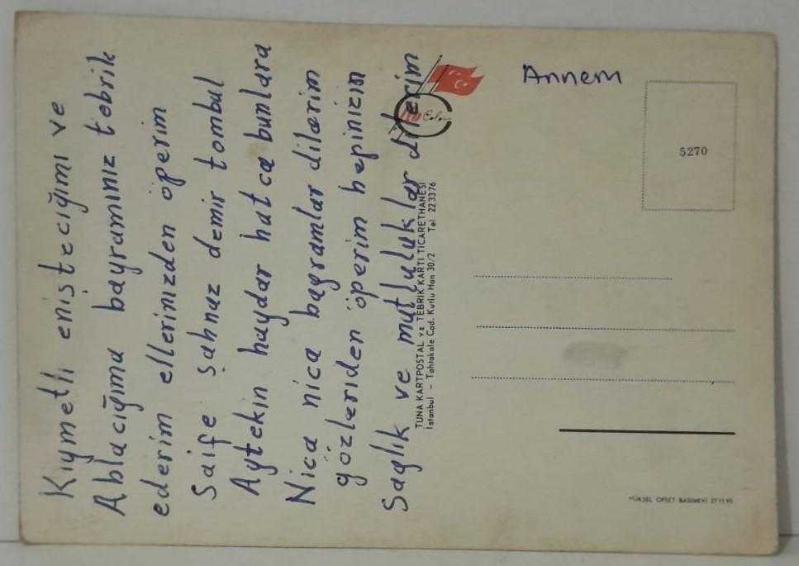 Kıymetli enişteciğimi ve
Ablacığıma bayramınız tebrik
ederim ellerinizden öperim
Saife şahnaz demir tombul
Aytekin haydar hatca bunlara
Nica nica bayramlar dilerim
gözleriden öperim hepinizin
Saglık ve mutluluklar dilerim
TUNA KARTPOSTAL ve TEBRİK KARTI TİCARETHANESİ
İstanbul - Tahtakale Cad. Kutlu Han 30/2 Tel: 223376
Annem
5270
YÜKSEL OFSET BASIMEVİ